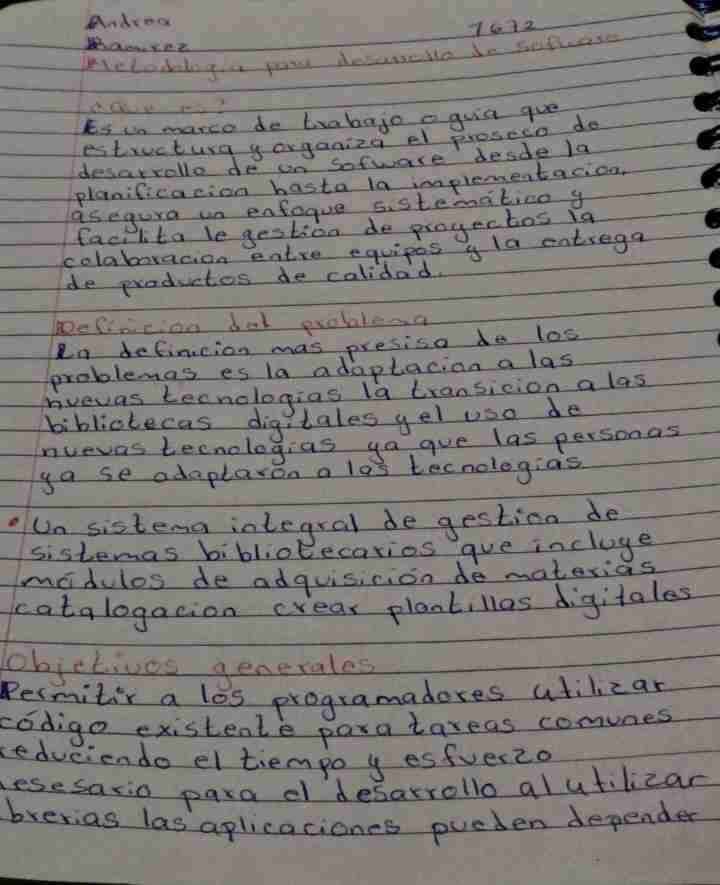 Andrea
7672
Ramirez
Metodologia para desarrollo de Sofware
¿Que es?
Es un marco de trabajo o guia que
estructura y organiza el proseco de
desarrollo de un sofware desde la
planificacion hasta la implementacion.
asegura un enfoque sistemático y
facilita le gestion de proyectos la
colaboracion entre equipos y la entrega
de productos de calidad.
Definicion del problema
La definicion mas presisa de los
problemas es la adaptacion a las
nuevas tecnologias la transicion a las
bibliotecas digitales y el uso de
nuevas tecnologias ya que las personas
ya se adaptarón a los tecnologias
• Un sistema integral de gestion de
sistemas bibliotecarios que incluye
módulos de adquisición de materias
catalogacion crear plantillas digitales
Objetivos generales
Permitir a los programadores utilizar
código existente para tareas comunes
reduciendo el tiempo y esfuerzo
esesario para el desarrollo al utilizar
brerias las aplicaciones pueden depender